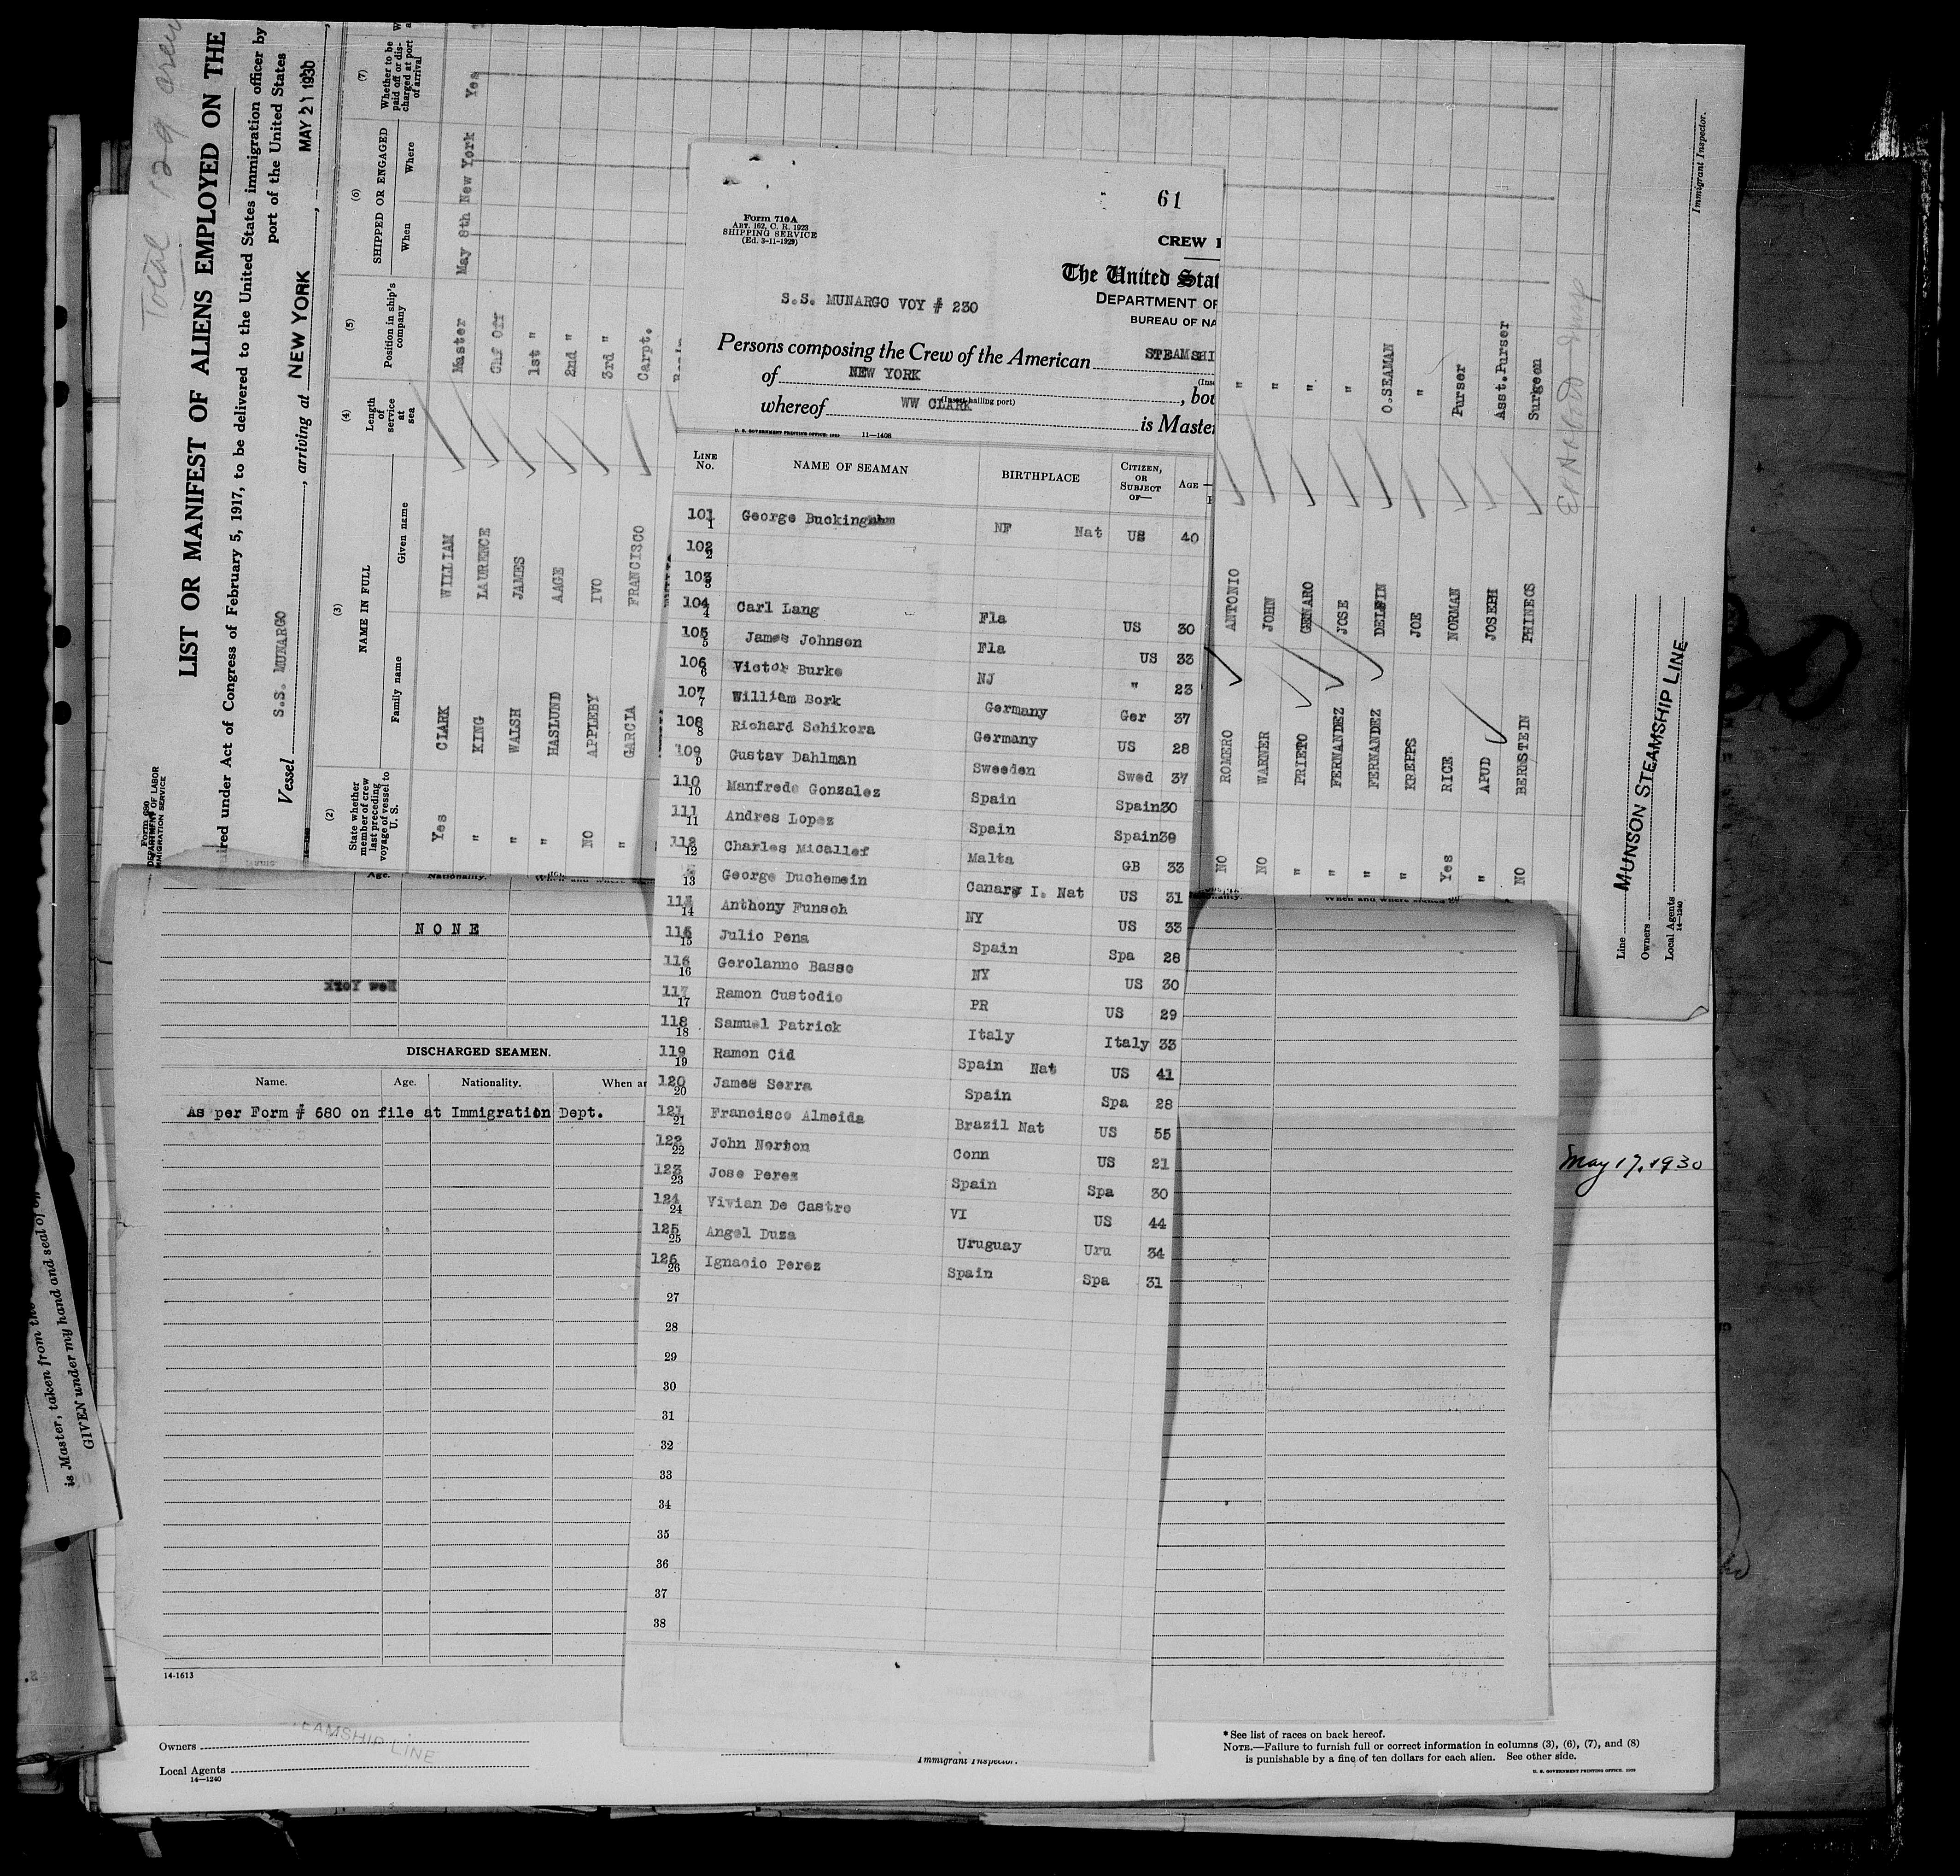 Total 129 crew
Form 680
DEPARTMENT OF LABOR
IMMIGRATION SERVICE
LIST OR MANIFEST OF ALIENS EMPLOYED ON THE
ired under Act of Congress of February 5, 1917, to be delivered to the United States immigration officer by
port of the United States
Vessel S.S. MUNARGO, arriving at NEW YORK, MAY 21 1930
(2) (3) (4) (5) (6) (7)
State whether member of crew last preceding voyage of vessel to U. S.
NAME IN FULL
Family name Given name
Length of service at sea
Position in ship's company
SHIPPED OR ENGAGED
When Where
Whether to be paid off or dis-charged at port of arrival
Yes CLARK WILLIAM Master May 8th New York Yes
" KING LAURENCE Chf Off
" WALSH JAMES 1st "
" HASLUND AAGE 2nd "
NO APPLEBY IVO 3rd "
" GARCIA FRANCISCO Carpt.
NO ROMERO ANTONIO "
NO WARNER JOHN "
" PRIETO GENARO "
" FERNANDEZ JOSE "
" FERNANDEZ DELFIN O.SEAMAN
" KREPPS JOE "
Yes RICE NORMAN Purser
" APUD JOSEPH Asst.Purser
NO BERNSTEIN PHINECS Surgeon
Line MUNSON STEAMSHIP LINE
Owners
Local Agents
14—1240
Immigrant Inspector.
61
Form 710A
ART. 162, C. R. 1923
SHIPPING SERVICE
(Ed. 3-11-1929)
CREW
The United Stat
DEPARTMENT OF
BUREAU OF NA
S.S. MUNARGO VOY # 230
Persons composing the Crew of the American STEAMSHI
of NEW YORK, bou
(Insert hailing port)
whereof WW CLARK is Master
U. S. GOVERNMENT PRINTING OFFICE: 1929 11—1408
LINE No. NAME OF SEAMAN BIRTHPLACE CITIZEN, OR SUBJECT OF— AGE
101 1 George Buckingham NF Nat US 40
102 2
103 3
104 4 Carl Lang Fla US 30
105 5 James Johnson Fla US 33
106 6 Victor Burke NJ " 23
107 7 William Bork Germany Ger 37
108 8 Richard Schikora Germany US 28
109 9 Gustav Dahlman Sweeden Swed 37
110 10 Manfredo Gonzalez Spain Spain 30
111 11 Andres Lopez Spain Spain 39
112 12 Charles Micallef Malta GB 33
13 George Duchemein Canary I. Nat US 31
114 14 Anthony Funsch NY US 33
115 15 Julio Pena Spain Spa 28
116 16 Gerolanno Basso NY US 30
117 17 Ramon Custodio PR US 29
118 18 Samuel Patrick Italy Italy 33
119 19 Ramon Cid Spain Nat US 41
120 20 James Serra Spain Spa 28
121 21 Francisco Almeida Brazil Nat US 55
122 22 John Norton Conn US 21
123 23 Jose Perez Spain Spa 30
124 24 Vivian De Castro VI US 44
125 25 Angel Duza Uruguay Uru 34
126 26 Ignacio Perez Spain Spa 31
27
28
29
30
31
32
33
34
35
36
37
38
Age. Nationality.
NONE
New York
DISCHARGED SEAMEN.
Name. Age. Nationality. When an
As per Form # 680 on file at Immigration Dept.
14-1613
May 17, 1930
is Master, taken from the
GIVEN under my hand and seal of
Owners
EAMSHIP LINE
Local Agents
14—1240
Immigrant Inspector.
*See list of races on back hereof.
NOTE.—Failure to furnish full or correct information in columns (3), (6), (7), and (8)
is punishable by a fine of ten dollars for each alien. See other side.
U. S. GOVERNMENT PRINTING OFFICE: 1929